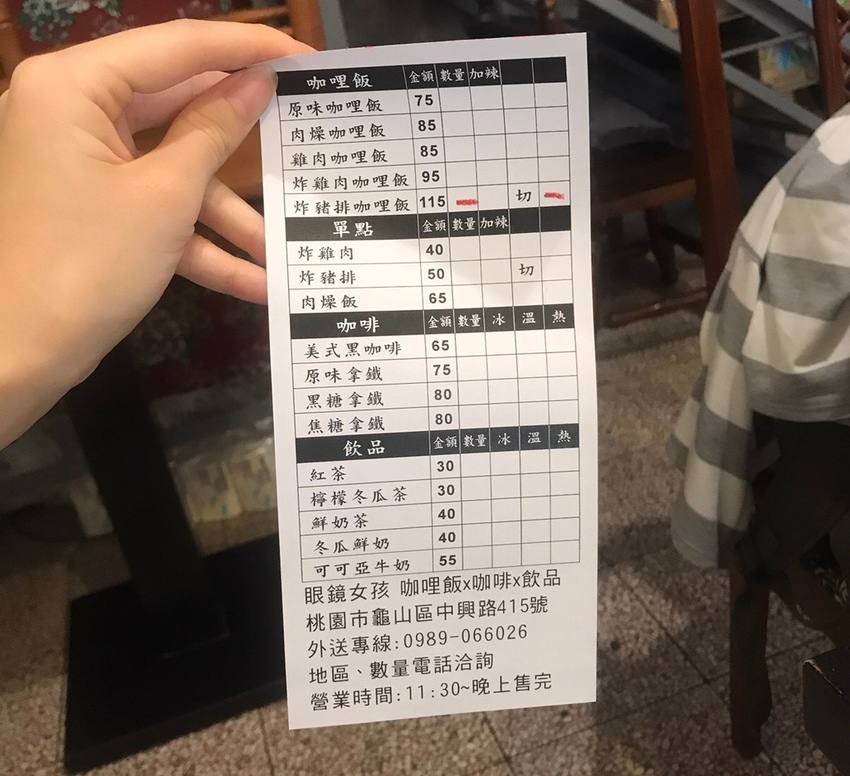 咖哩飯 金額 數量 加辣
原味咖哩飯 75
肉燥咖哩飯 85
雞肉咖哩飯 85
炸雞肉咖哩飯 95
炸豬排咖哩飯 115 切
單點 金額 數量 加辣
炸雞肉 40
炸豬排 50 切
肉燥飯 65
咖啡 金額 數量 冰 溫 熱
美式黑咖啡 65
原味拿鐵 75
黑糖拿鐵 80
焦糖拿鐵 80
飲品 金額 數量 冰 溫 熱
紅茶 30
檸檬冬瓜茶 30
鮮奶茶 40
冬瓜鮮奶 40
可可亞牛奶 55
眼鏡女孩 咖哩飯x咖啡x飲品
桃園市龜山區中興路415號
外送專線:0989-066026
地區、數量電話洽詢
營業時間:11:30~晚上售完